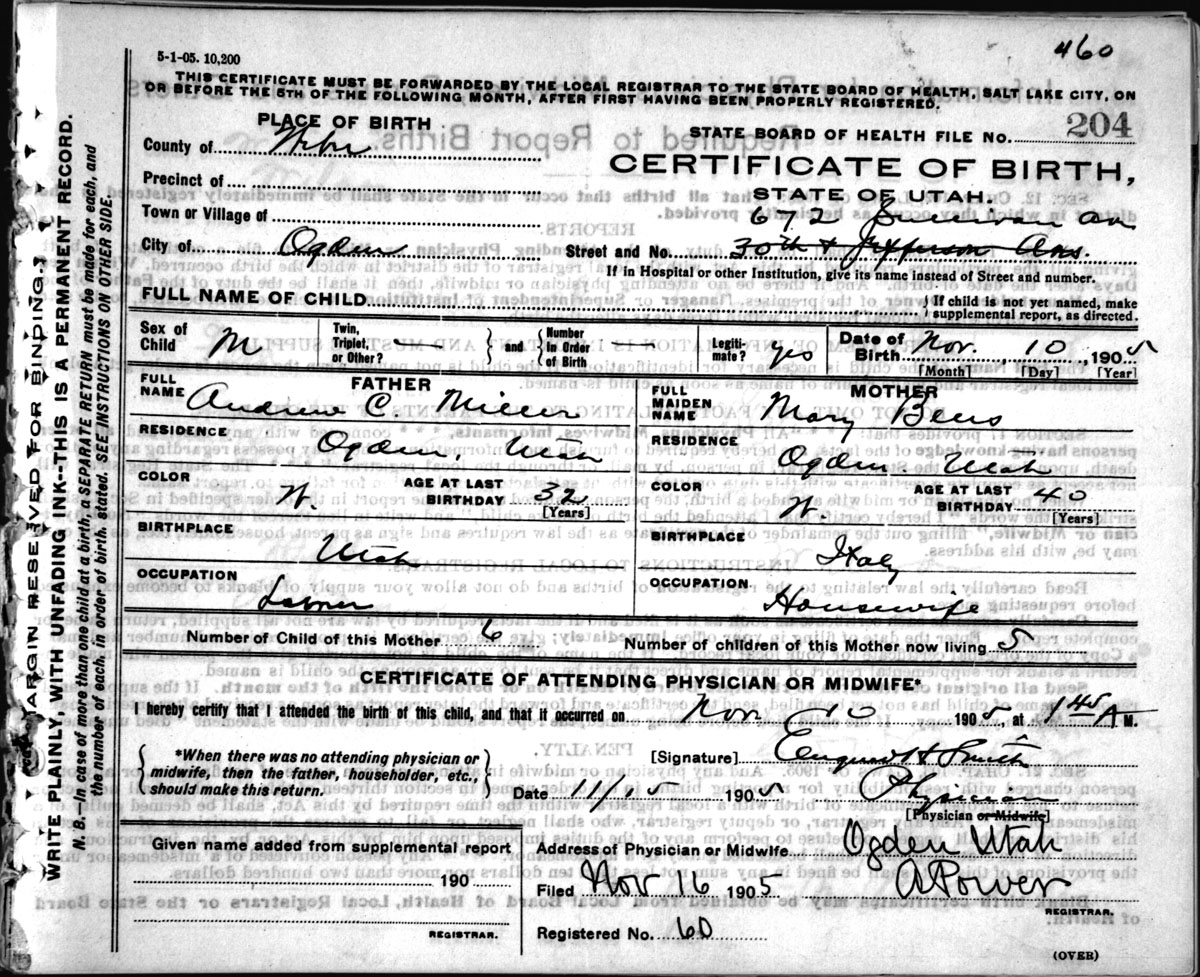 460
5-1-05. 10,200
THIS CERTIFICATE MUST BE FORWARDED BY THE LOCAL REGISTRAR TO THE STATE BOARD OF HEALTH, SALT LAKE CITY, ON
OR BEFORE THE 5TH OF THE FOLLOWING MONTH, AFTER FIRST HAVING BEEN PROPERLY REGISTERED.
PLACE OF BIRTH
STATE BOARD OF HEALTH FILE NO. 204
County of Weber
CERTIFICATE OF BIRTH,
Precinct of
STATE OF UTAH.
Town or Village of
672
City of Ogden Street and No. 30th & Jefferson Avs.
If in Hospital or other Institution, give its name instead of Street and number.
FULL NAME OF CHILD } If child is not yet named, make
supplemental report, as directed.
Sex of Child M Twin, Triplet, or Other? — { and } Number In Order of Birth — Legiti-mate? yes Date of Birth Nov. 10, 1905
[Month] [Day] [Year]
FATHER MOTHER
FULL NAME Andrew C. Miller FULL MAIDEN NAME Mary
RESIDENCE Ogden Utah RESIDENCE Ogden Utah
COLOR W. AGE AT LAST BIRTHDAY 32 [Years] COLOR W. AGE AT LAST BIRTHDAY 40 [Years]
BIRTHPLACE Utah BIRTHPLACE Italy
OCCUPATION Laborer OCCUPATION Housewife
Number of Child of this Mother 6 Number of children of this Mother now living 5
CERTIFICATE OF ATTENDING PHYSICIAN OR MIDWIFE*
I hereby certify that I attended the birth of this child, and that it occurred on Nov. 10 1905, at 1 45 A M.
{ *When there was no attending physician or
midwife, then the father, householder, etc.,
should make this return. }
[Signature] H Smith
Date 11/15 1905 Physician
[Physician or Midwife]
Given name added from supplemental report
190
REGISTRAR.
Address of Physician or Midwife Ogden Utah
Filed Nov 16 1905 A Power
REGISTRAR.
Registered No. 60
(OVER)
MARGIN RESERVED FOR BINDING.]
WRITE PLAINLY WITH UNFADING INK--THIS IS A PERMANENT RECORD.
N. B.—In case of more than one child at a birth, a SEPARATE RETURN must be made for each, and
the number of each, in order of birth, stated. SEE INSTRUCTIONS ON OTHER SIDE.